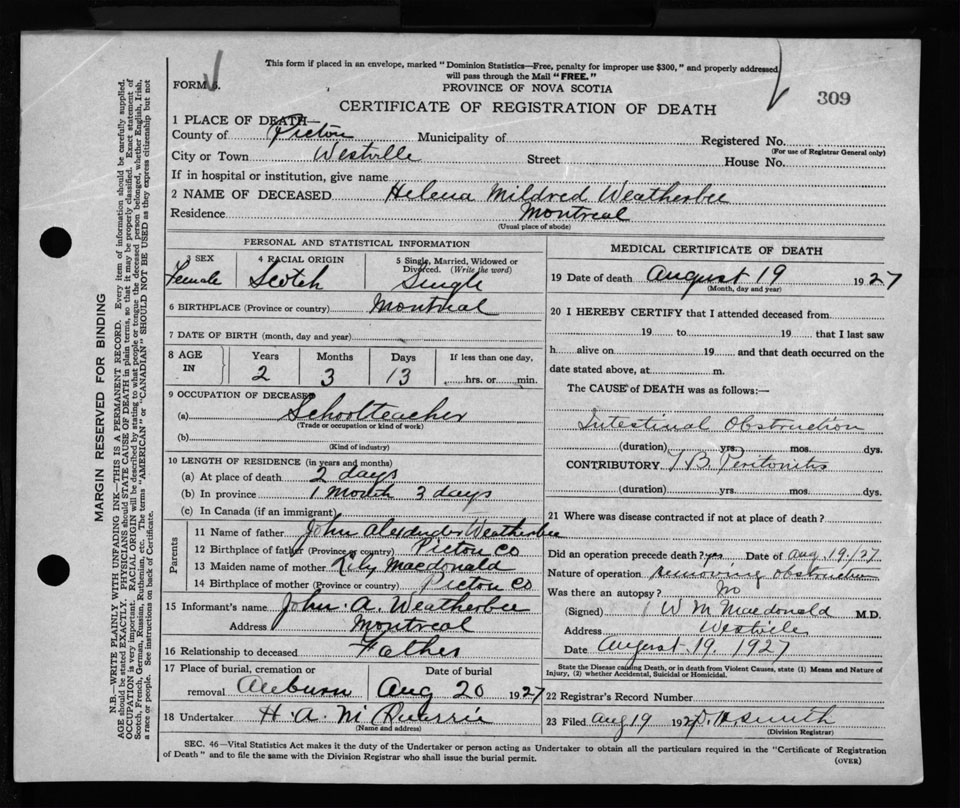 This form if placed in an envelope, marked "Dominion Statistics—Free, penalty for improper use $300," and properly addressed
will pass through the Mail "FREE."
FORM 6.
PROVINCE OF NOVA SCOTIA
CERTIFICATE OF REGISTRATION OF DEATH
309
1 PLACE OF DEATH—
County of Pictou Municipality of Registered No.
(For use of Registrar General only)
City or Town Westville Street House No.
If in hospital or institution, give name
2 NAME OF DECEASED Helena Mildred Weatherbee
Residence Montreal
(Usual place of abode)
PERSONAL AND STATISTICAL INFORMATION
3 SEX 4 RACIAL ORIGIN 5 Single, Married, Widowed or
Divorced. (Write the word)
Female Scotch Single
6 BIRTHPLACE (Province or country) Montreal
7 DATE OF BIRTH (month, day and year)
8 AGE IN Years Months Days If less than one day,
2 3 13 hrs. or min.
9 OCCUPATION OF DECEASED
(a) Schoolteacher
(Trade or occupation or kind of work)
(b)
(Kind of industry)
10 LENGTH OF RESIDENCE (in years and months)
(a) At place of death 2 days
(b) In province 1 month 3 days
(c) In Canada (if an immigrant)
Parents
11 Name of father John Alexander Weatherbee
12 Birthplace of father (Province or country) Pictou Co
13 Maiden name of mother Lily Macdonald
14 Birthplace of mother (Province or country) Pictou Co
15 Informant's name John A. Weatherbee
Address Montreal
16 Relationship to deceased Father
17 Place of burial, cremation or Date of burial
removal Auburn Aug 20 1927
18 Undertaker H. A. McQuarrie
(Name and address)
MEDICAL CERTIFICATE OF DEATH
19 Date of death August 19 1927
(Month, day and year)
20 I HEREBY CERTIFY that I attended deceased from
19 to 19 that I last saw
h alive on 19 and that death occurred on the
date stated above, at m.
The CAUSE of DEATH was as follows:—
Intestinal Obstruction
(duration) yrs. mos. dys.
CONTRIBUTORY T.B. Peritonitis
(duration) yrs. mos. dys.
21 Where was disease contracted if not at place of death?
Did an operation precede death? yes Date of Aug. 19/27
Nature of operation removing obstruction
Was there an autopsy? No
(Signed) W M Macdonald M.D.
Address Westville
Date August 19, 1927
State the Disease causing Death, or in death from Violent Causes, state (1) Means and Nature of
Injury, (2) whether Accidental, Suicidal or Homicidal.
22 Registrar's Record Number
23 Filed Aug 19 1927 Smith
(Division Registrar)
SEC. 46—Vital Statistics Act makes it the duty of the Undertaker or person acting as Undertaker to obtain all the particulars required in the "Certificate of Registration
of Death" and to file the same with the Division Registrar who shall issue the burial permit.
(OVER)
MARGIN RESERVED FOR BINDING
N.B.—WRITE PLAINLY WITH UNFADING INK—THIS IS A PERMANENT RECORD. Every item of information should be carefully supplied.
AGE should be stated EXACTLY. PHYSICIANS should STATE CAUSE OF DEATH in plain terms, so that it may be properly classified. Exact statement of
OCCUPATION is very important. RACIAL ORIGIN will be described by stating to what people or tongue the deceased person belonged, whether English, Irish,
Scotch, French, German, Russian, Ruthenian, etc. The terms "AMERICAN" or "CANADIAN" SHOULD NOT BE USED as they express citizenship but not
a race or people. See instructions on back of Certificate.